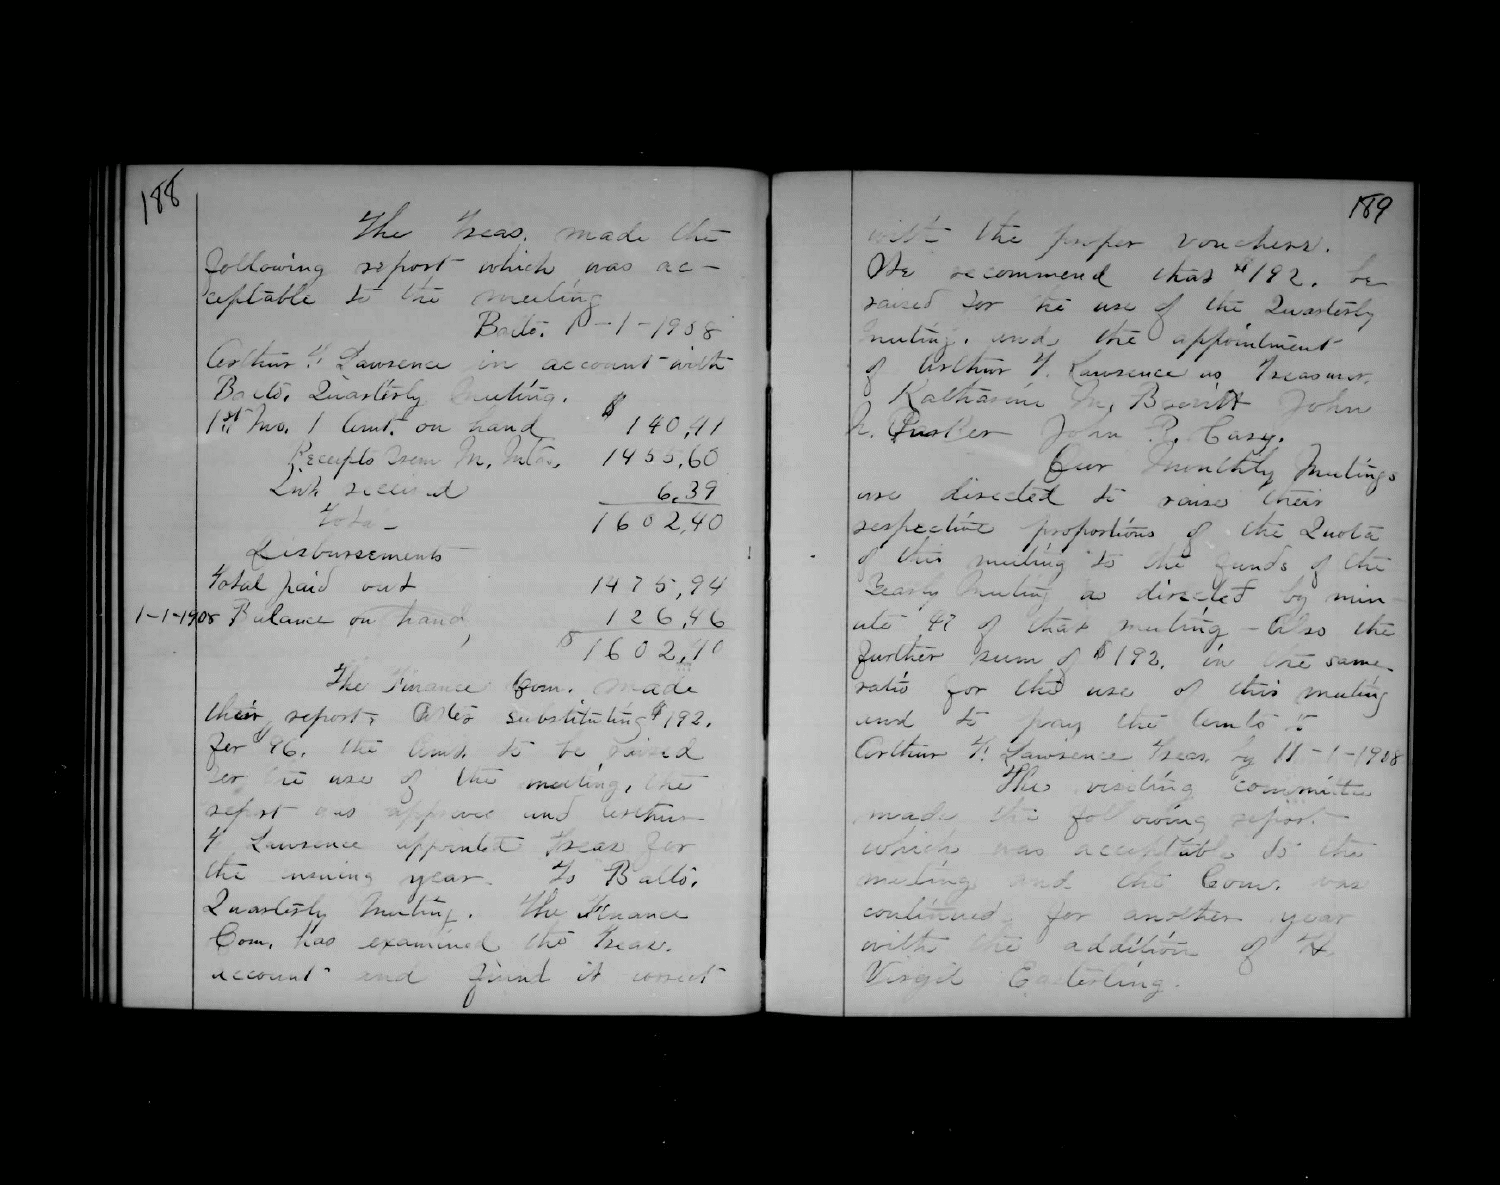 188
The Treas. made the
following report which was ac-
ceptable to the meeting
Balto. 1-1-1908
Arthur F. Lawrence in account with
Balto. Quarterly Meeting.
1st Mo. 1 Amt. on hand $ 140,41
Receipts from M. Mtgs. 1455,60
Int. received 6,39
Total 1602,40
Disbursements
Total paid out 1475,94
1-1-1908 Balance on hand 126,46
$ 1602,40
The Finance Com. made
their report. After substituting $192.
for 96. the Amt. to be raised
for the use of the meeting, the
report was approved and Arthur
F Lawrence appointed Treas for
the ensuing year. To Balto.
Quarterly Meeting. The Finance
Com. has examined the Treas.
account and find it correct
189
with the proper vouchers.
We recommend that $192. be
raised for the use of the Quarterly
Meeting. and the appointment
of Arthur F. Lawrence as Treasurer.
Katharine M. John
Parker John R. Cary.
Our Monthly Meetings
are directed to raise their
respective proportions of the Quota
of this meeting to the funds of the
Yearly Meeting as directed by min-
ute 47 of that meeting - Also the
further sum of $192. in the same
ratio for the use of this meeting
and to pay the Amts to
Arthur F. Lawrence Treas. by 11-1-1908
The visiting committee
made the following report
which was acceptable to the
meeting and the Com. was
continued for another year
with the addition of H.
Virgil Easterling.